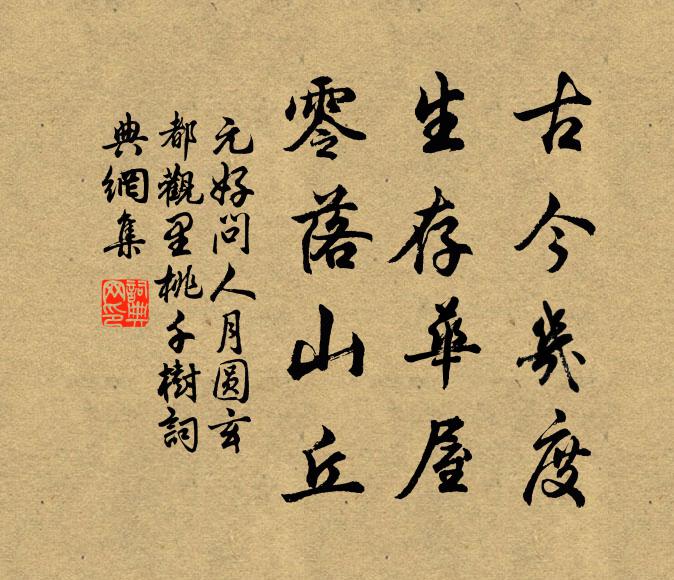 古今幾度
生存華屋
零落山丘
元好問人月圆玄
都觀里桃千樹詞
典網集
詞典
网印